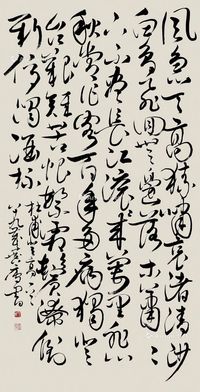 風急天高猿嘯哀渚清沙
白鳥飛迴無邊落木蕭〻
下不盡長江滾〻來萬里悲
秋常作客百年多病獨登
台艱難苦恨繁霜鬢潦倒
新停濁杯
杜甫登高
書